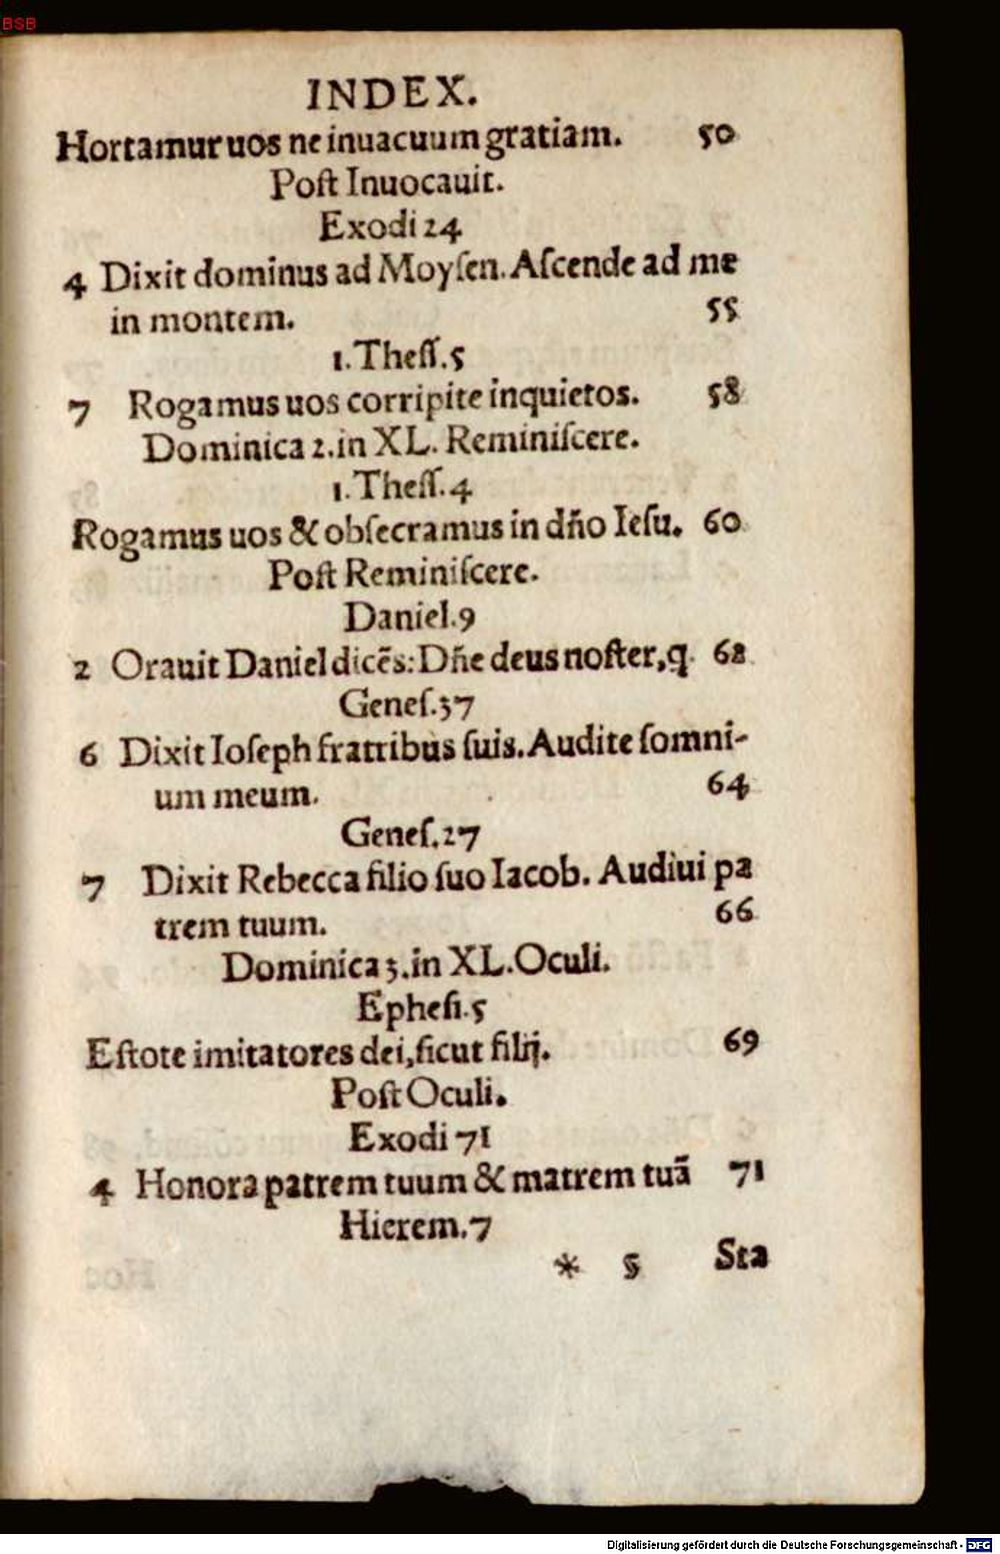 BSB
INDEX.
Hortamur uos ne inuacuum gratiam. 50
Poſt Inuocauit.
Exodi 24
4 Dixit dominus ad Moyſen. Aſcende ad me
in montem. 55
1. Theſſ. 5
7 Rogamus uos corripite inquietos. 58
Dominica 2. in XL. Reminiſcere.
1. Theſſ. 4
Rogamus uos & obſecramus in dño Ieſu. 60
Poſt Reminiſcere.
Daniel. 9
2 Orauit Daniel dicẽs: Dñe deus noſter, q 62
Geneſ. 37
6 Dixit Ioſeph fratribus ſuis. Audite ſomni-
um meum. 64
Geneſ. 27
7 Dixit Rebecca filio ſuo Iacob. Audiui pa
trem tuum. 66
Dominica 3. in XL. Oculi.
Epheſi. 5
Eſtote imitatores dei, ſicut filij. 69
Poſt Oculi.
Exodi 71
4 Honora patrem tuum & matrem tuã 71
Hierem. 7
* 5 Sta
Digitalisierung gefördert durch die Deutsche Forschungsgemeinschaft - DFG